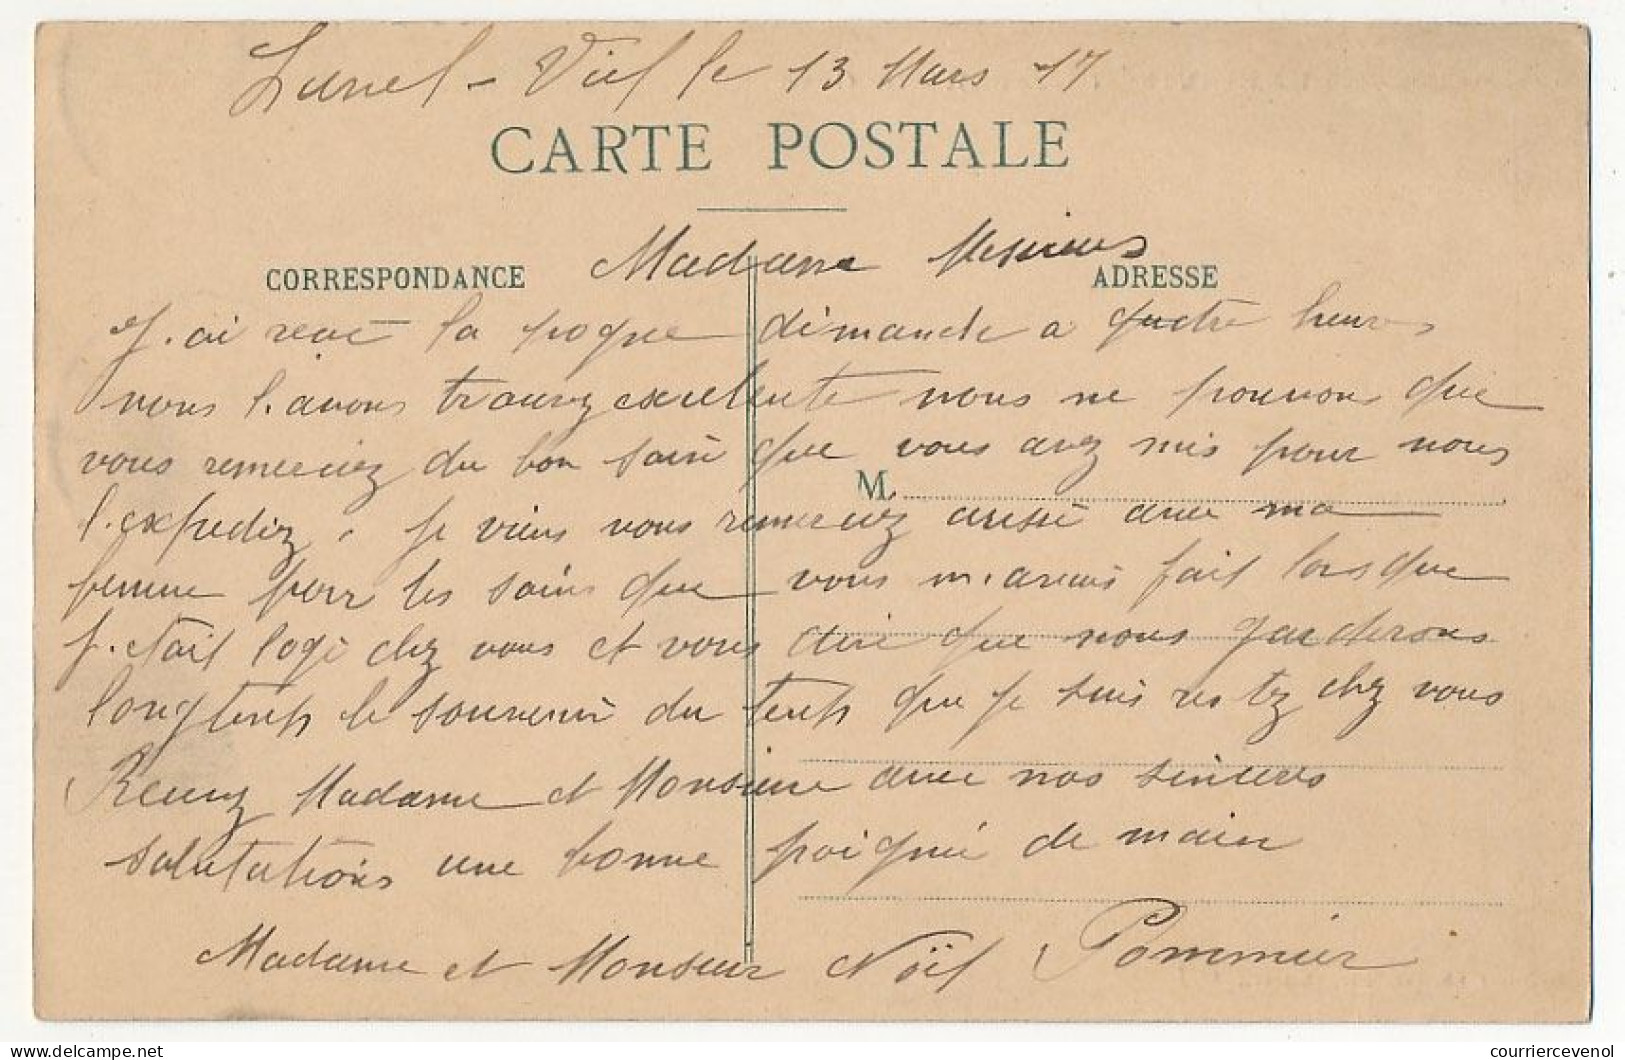 Lunel - Viel le 13 Mars 17
CARTE POSTALE
Madame Messieurs
CORRESPONDANCE
ADRESSE
J.ai recut la poque dimanche a quatre heures
nous l.avons trouvez excelente nous ne pouvons que
vous remerciez du bon soin que vous avez mis pour nous
M.
l.expediez, je viens vous remerciez aussi avec ma
femme pour les soins que vous m.aviez fait lorsque
j.etait logé chez vous et vous dire que nous garderons
longtemps le souvenir du temps que je suis restez chez vous
Recevez Madame et Monsieur avec nos sinceres
salutations une bonne poignée de main
Madame et Monsieur Noël Pommier
delcampe.net
courriercevenol